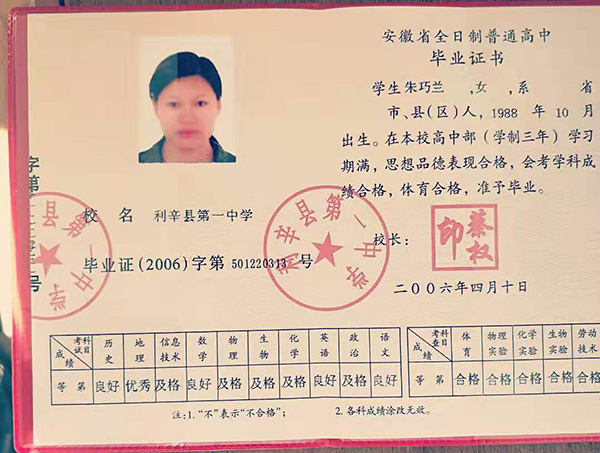 安徽省全日制普通高中
毕业证书
学生朱巧兰 ,女 ,系 省
市、县(区)人, 1988 年 10 月
出生。在本校高中部(学制三年)学习
期满,思想品德表现合格,会考学科成
绩合格,体育合格,准予毕业。
校 名 利辛县第一中学
毕业证(2006)字第 501220313 号
利辛县第一中学
校长:
綦权印
二〇〇六年四月十日
字第
号
县第一中学
考试科目 历史 地理 信息技术 数学 物理 生物 化学 英语 政治 语文
成绩
等 第 良好 优秀 及格 良好 及格 及格 及格 良好 及格 良好
考查科目 体育 物理实验 化学实验 生物实验 劳动技术
成绩
等 第 合格 合格 合格 合格 合格
注:1.“不”表示“不合格”; 2. 各科成绩涂改无效。